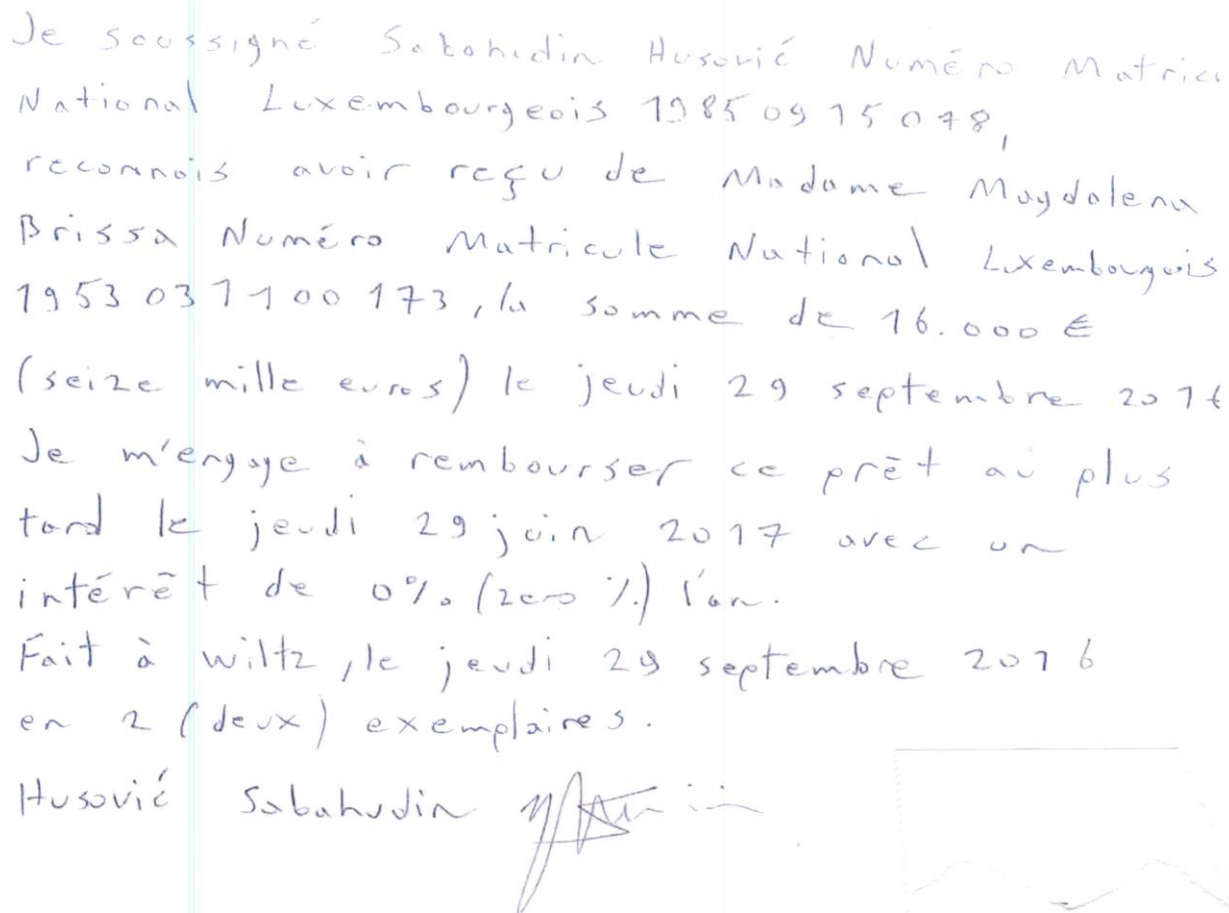 Je soussigné Sabahudin Husović Numéro Matricu
National Luxembourgeois 1985 09 15 078,
reconnois avoir reçu de Madame Magdalena
Brissa Numéro Matricule National Luxembourgeois
1953 03 11 00 173, la somme de 16.000 €
(seize mille euros) le jeudi 29 septembre 2016
Je m'engage à rembourser ce prêt au plus
tard le jeudi 29 juin 2017 avec un
intérêt de 0% (zero %) l'an.
Fait à Wiltz, le jeudi 29 septembre 2016
en 2 (deux) exemplaires.
Husović Sabahudin